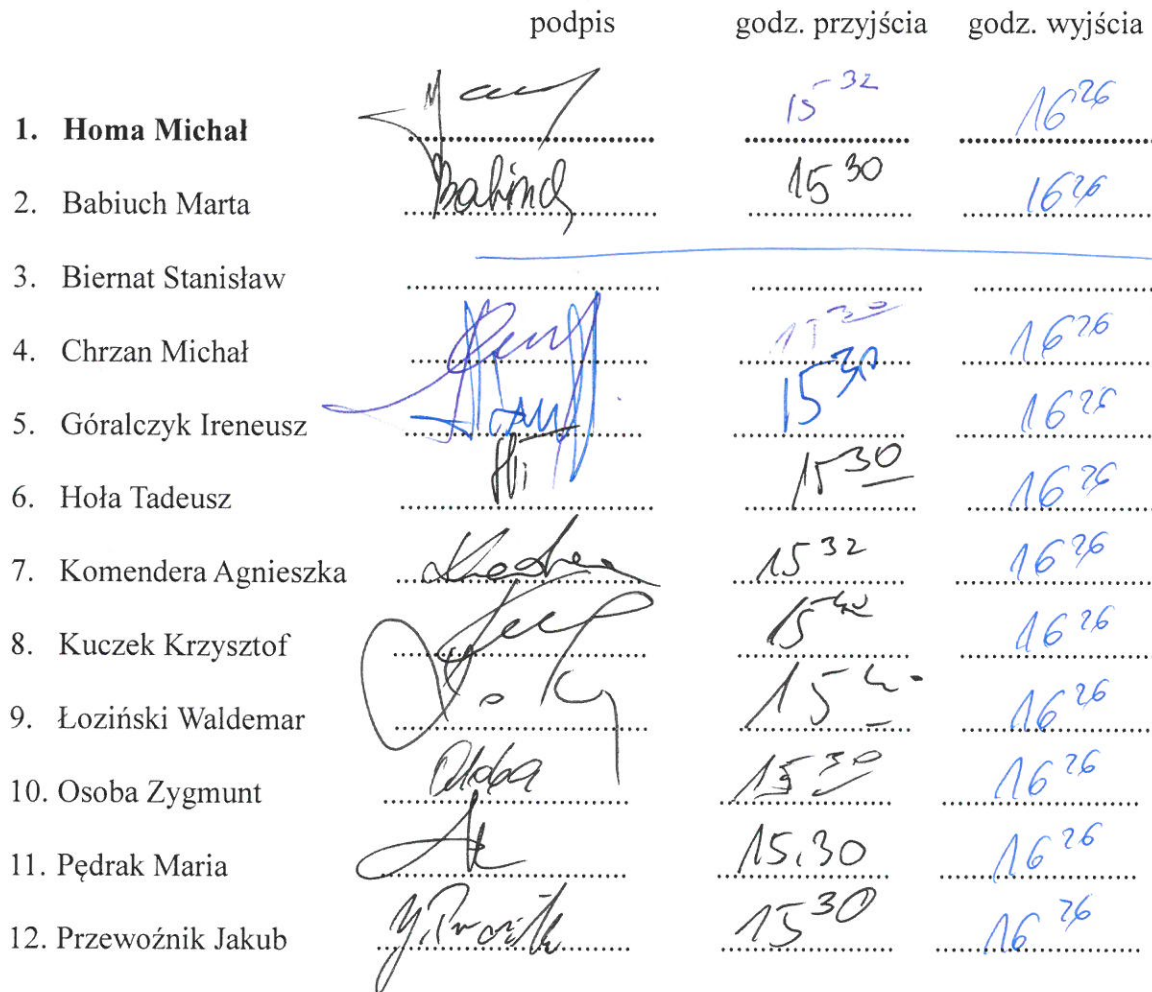 podpis godz. przyjścia godz. wyjścia
1. Homa Michał 15 32 16 26
2. Babiuch Marta 15 30 16 26
3. Biernat Stanisław
4. Chrzan Michał 15 30 16 26
5. Góralczyk Ireneusz 15 30 16 26
6. Hoła Tadeusz 15 30 16 26
7. Komendera Agnieszka 15 32 16 26
8. Kuczek Krzysztof 15 40 16 26
9. Łoziński Waldemar 16 26
10. Osoba Zygmunt Osoba 15 30 16 26
11. Pędrak Maria 15.30 16 26
12. Przewoźnik Jakub 15 30 16 26